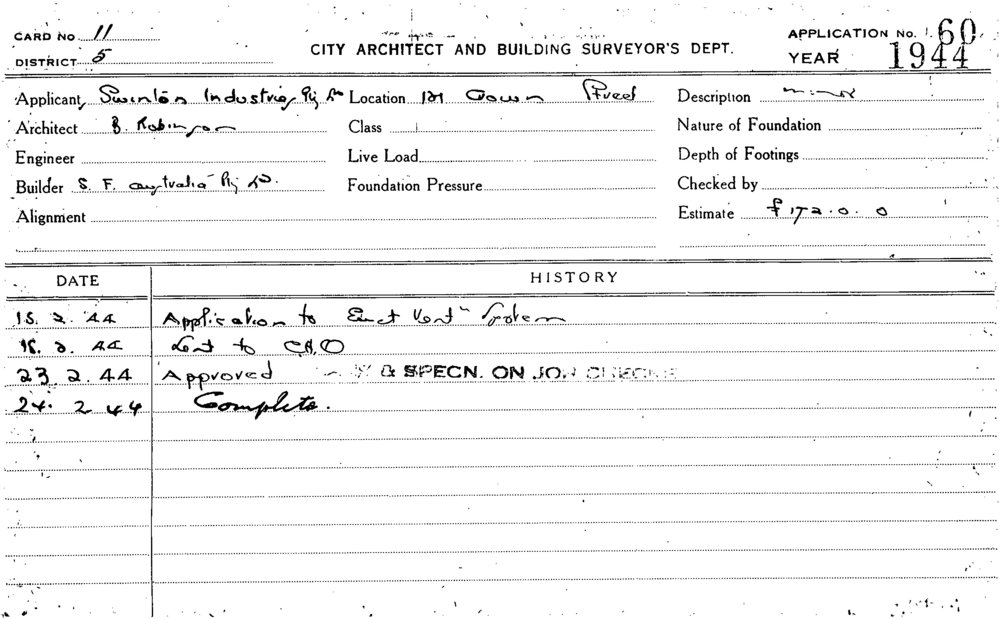 CARD No 11
DISTRICT 5
CITY ARCHITECT AND BUILDING SURVEYOR'S DEPT.
APPLICATION No. 60
YEAR 1944
Applicant Swinton Industries Pty Ld Location Crown Street Description
Architect B. Robinson Class Nature of Foundation
Engineer Live Load Depth of Footings
Builder S. F. Australia Pty Ld. Foundation Pressure Checked by
Alignment Estimate £172.0.0
DATE HISTORY
2. 44 Application to Erect Vent System
2. 44 Sent to
23. 2. 44 Approved & SPECN. ON JOB
24. 2 44 Complete.